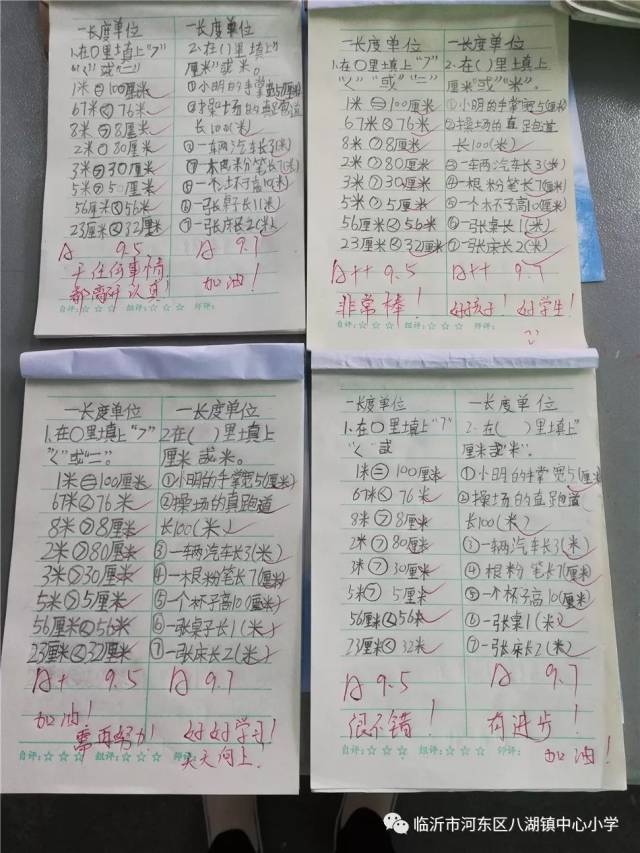 一长度单位
1.在〇里填上“>”
“<”或“=”
1米=100厘米
67米<76米
8米>8厘米
2米>80厘米
3米>30厘米
5米>50厘米
56厘米<56米
23厘米<32厘米
A 9.5
干任何事情,
都离开认真!
2.在( )里填上
厘米”或米。
①小明的手掌宽5(厘米)
②操场的真跑道
长100(米)
③一车两汽车长3(米)
④一木两米分笔长7(厘米)
⑥一张桌子长1(米)
⑦一张床长2(米)
A 9.7
加油!
自评:☆☆☆ 组评:☆☆☆ 师评:
一长度单位
1.在〇里填上“>”
“<”或“=”
1米=100厘米
67米<76米
8米>8厘米
2米>80厘米
3米>30厘米
5米>5厘米
56厘米<56米
23厘米<32厘米
A++ 9.5
非常棒!
一长度单位
2.在( )里填上
厘米”或“米”。
①小明的手掌宽5(厘米)
②操场的真足跑道
长100(米)
③一车两汽车长3(米)
④一根粉笔长7(厘米)
⑤一个木不子高10(厘米)
⑥一张桌长1(米)
⑦一张床长2(米)
A++ 9.7
好孩子! 好学生!
自评:☆☆☆ 组评:☆☆☆ 师评:
一长度单位
1、在〇里填上“>”
“<”或“=”。
1米=100厘米
67米<76米
8米>8厘米
2米>80厘米
3米>30厘米
5米>5厘米
56厘米<56米
23厘米<32厘米
A+ 9.5
加油!
需再努力!
一长度单位
2.在( )里填上
厘米或米。
①小明的手掌宽5(厘米)
②操场的真跑道
长100(米)
③一辆汽车长3(米)
④一根粉笔长7(厘米)
⑤一个杯子高10(厘米)
⑥一张桌子长1(米)
⑦一张床长2(米)
A 9.7
好好学习!
天天向上.
自评:☆☆☆ 组评:☆☆☆ 师评:
一长度单位
1.在〇里填上“>”
“<”或
1米=100厘米
67米<76米
8米>8厘米
2米>80厘米
3米>30厘米
5米>5厘米
56厘米<56米
23厘米<32米
A 9.5
很不错!
一长度单位
2.在( )里填上”
厘米或“米”.
①小明的手掌宽5(厘米)
②操场的直足包道
长100(米)
③一辆汽车长3(米)
④根粉笔长7(厘米)
⑤一个杯子高10(厘米)
⑥一张桌1(米)
⑦一张床长2(米)
A 9.7
有进步!
加油!
自评:☆☆☆ 组评:☆☆☆ 师评:
临沂市河东区八湖镇中心小学